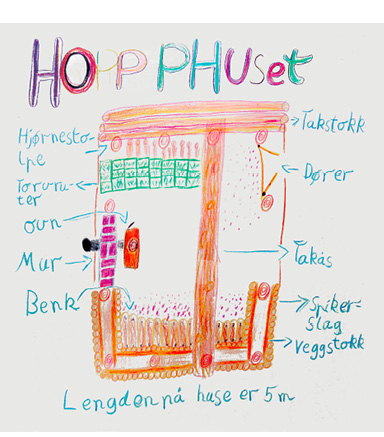 HOPP PHUSet
Hjørnesto-
lpe
Torvru-
ter
ovn
Mur
Benk
Takstokk
Dører
Takås
Spiker-
slag
Veggstokk
Lengden på huse er 5m